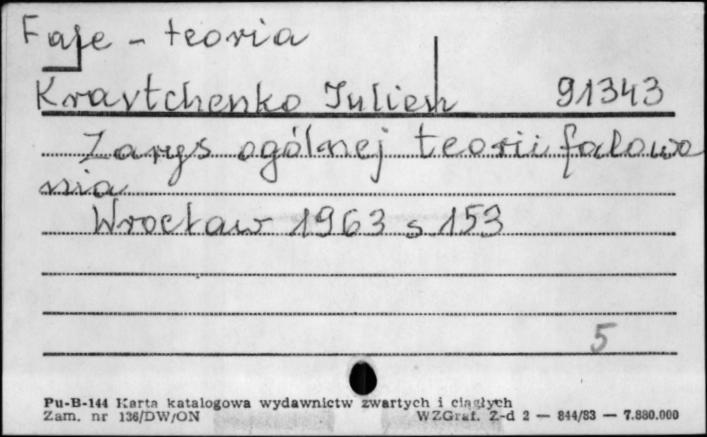 Faje - teoria
Kravtchenko Julien 91343
Zarys ogólnej teorii falowa
nia
Wrocław 1963 s 153
5
Pu-B-144 Karta katalogowa wydawnictw zwartych i ciągłych
Zam. nr 136/DW/ON WZGraf. Z-d 2 — 844/83 — 7.880.000